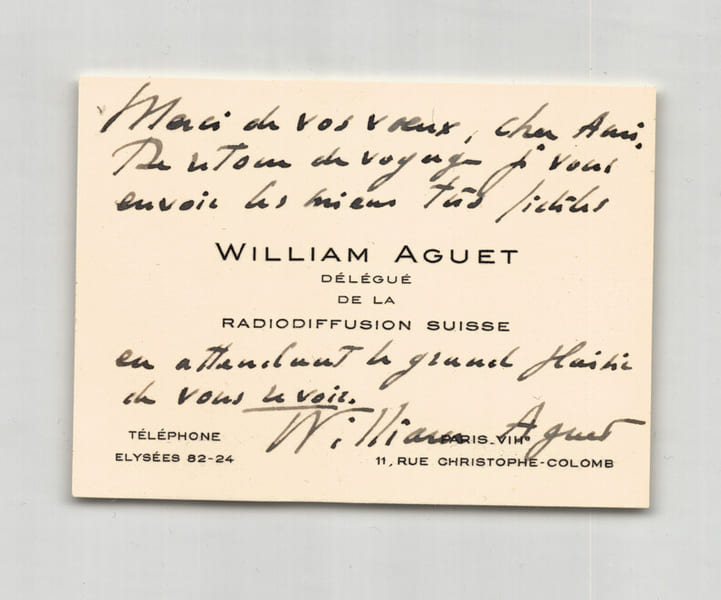 Merci de vos vœux, cher Ami.
De retour de voyage je vous
envoie les miens très fidèles
WILLIAM AGUET
DÉLÉGUÉ
DE LA
RADIODIFFUSION SUISSE
en attendant le grand plaisir
de vous revoir.
William Aguet
TÉLÉPHONE
ELYSÉES 82-24
PARIS-VIIIe
11, RUE CHRISTOPHE-COLOMB